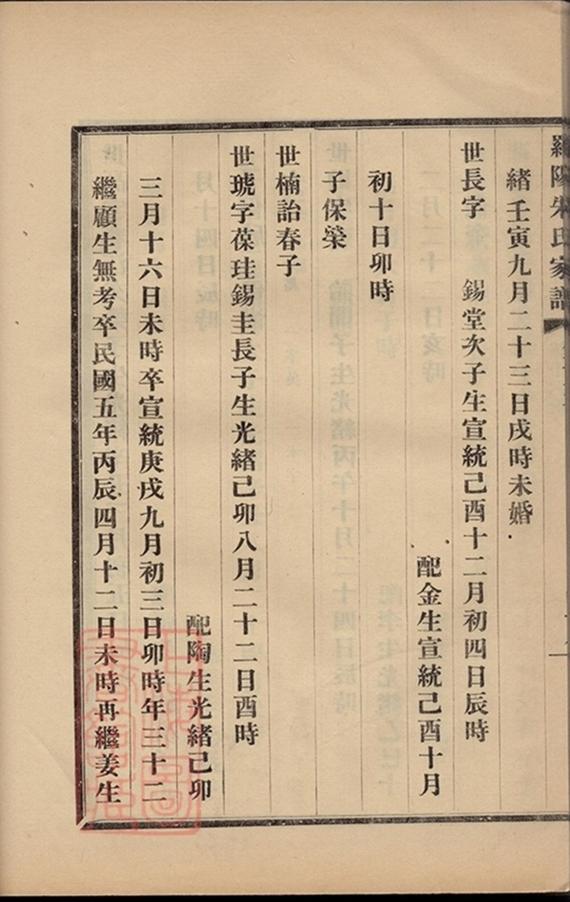 羅陽朱氏家譜
緒壬寅九月二十三日戌時未婚
世長字 錫堂次子生宣統己酉十二月初四日辰時
配金生宣統己酉十月
初十日卯時
子保榮
世楠詒春子
世琥字葆珪錫圭長子生光緒己卯八月二十二日酉時
配陶生光緒己卯
三月十六日未時卒宣統庚戌九月初三日卯時年三十二
繼顧生無考卒民國五年丙辰四月十二日未時再繼姜生